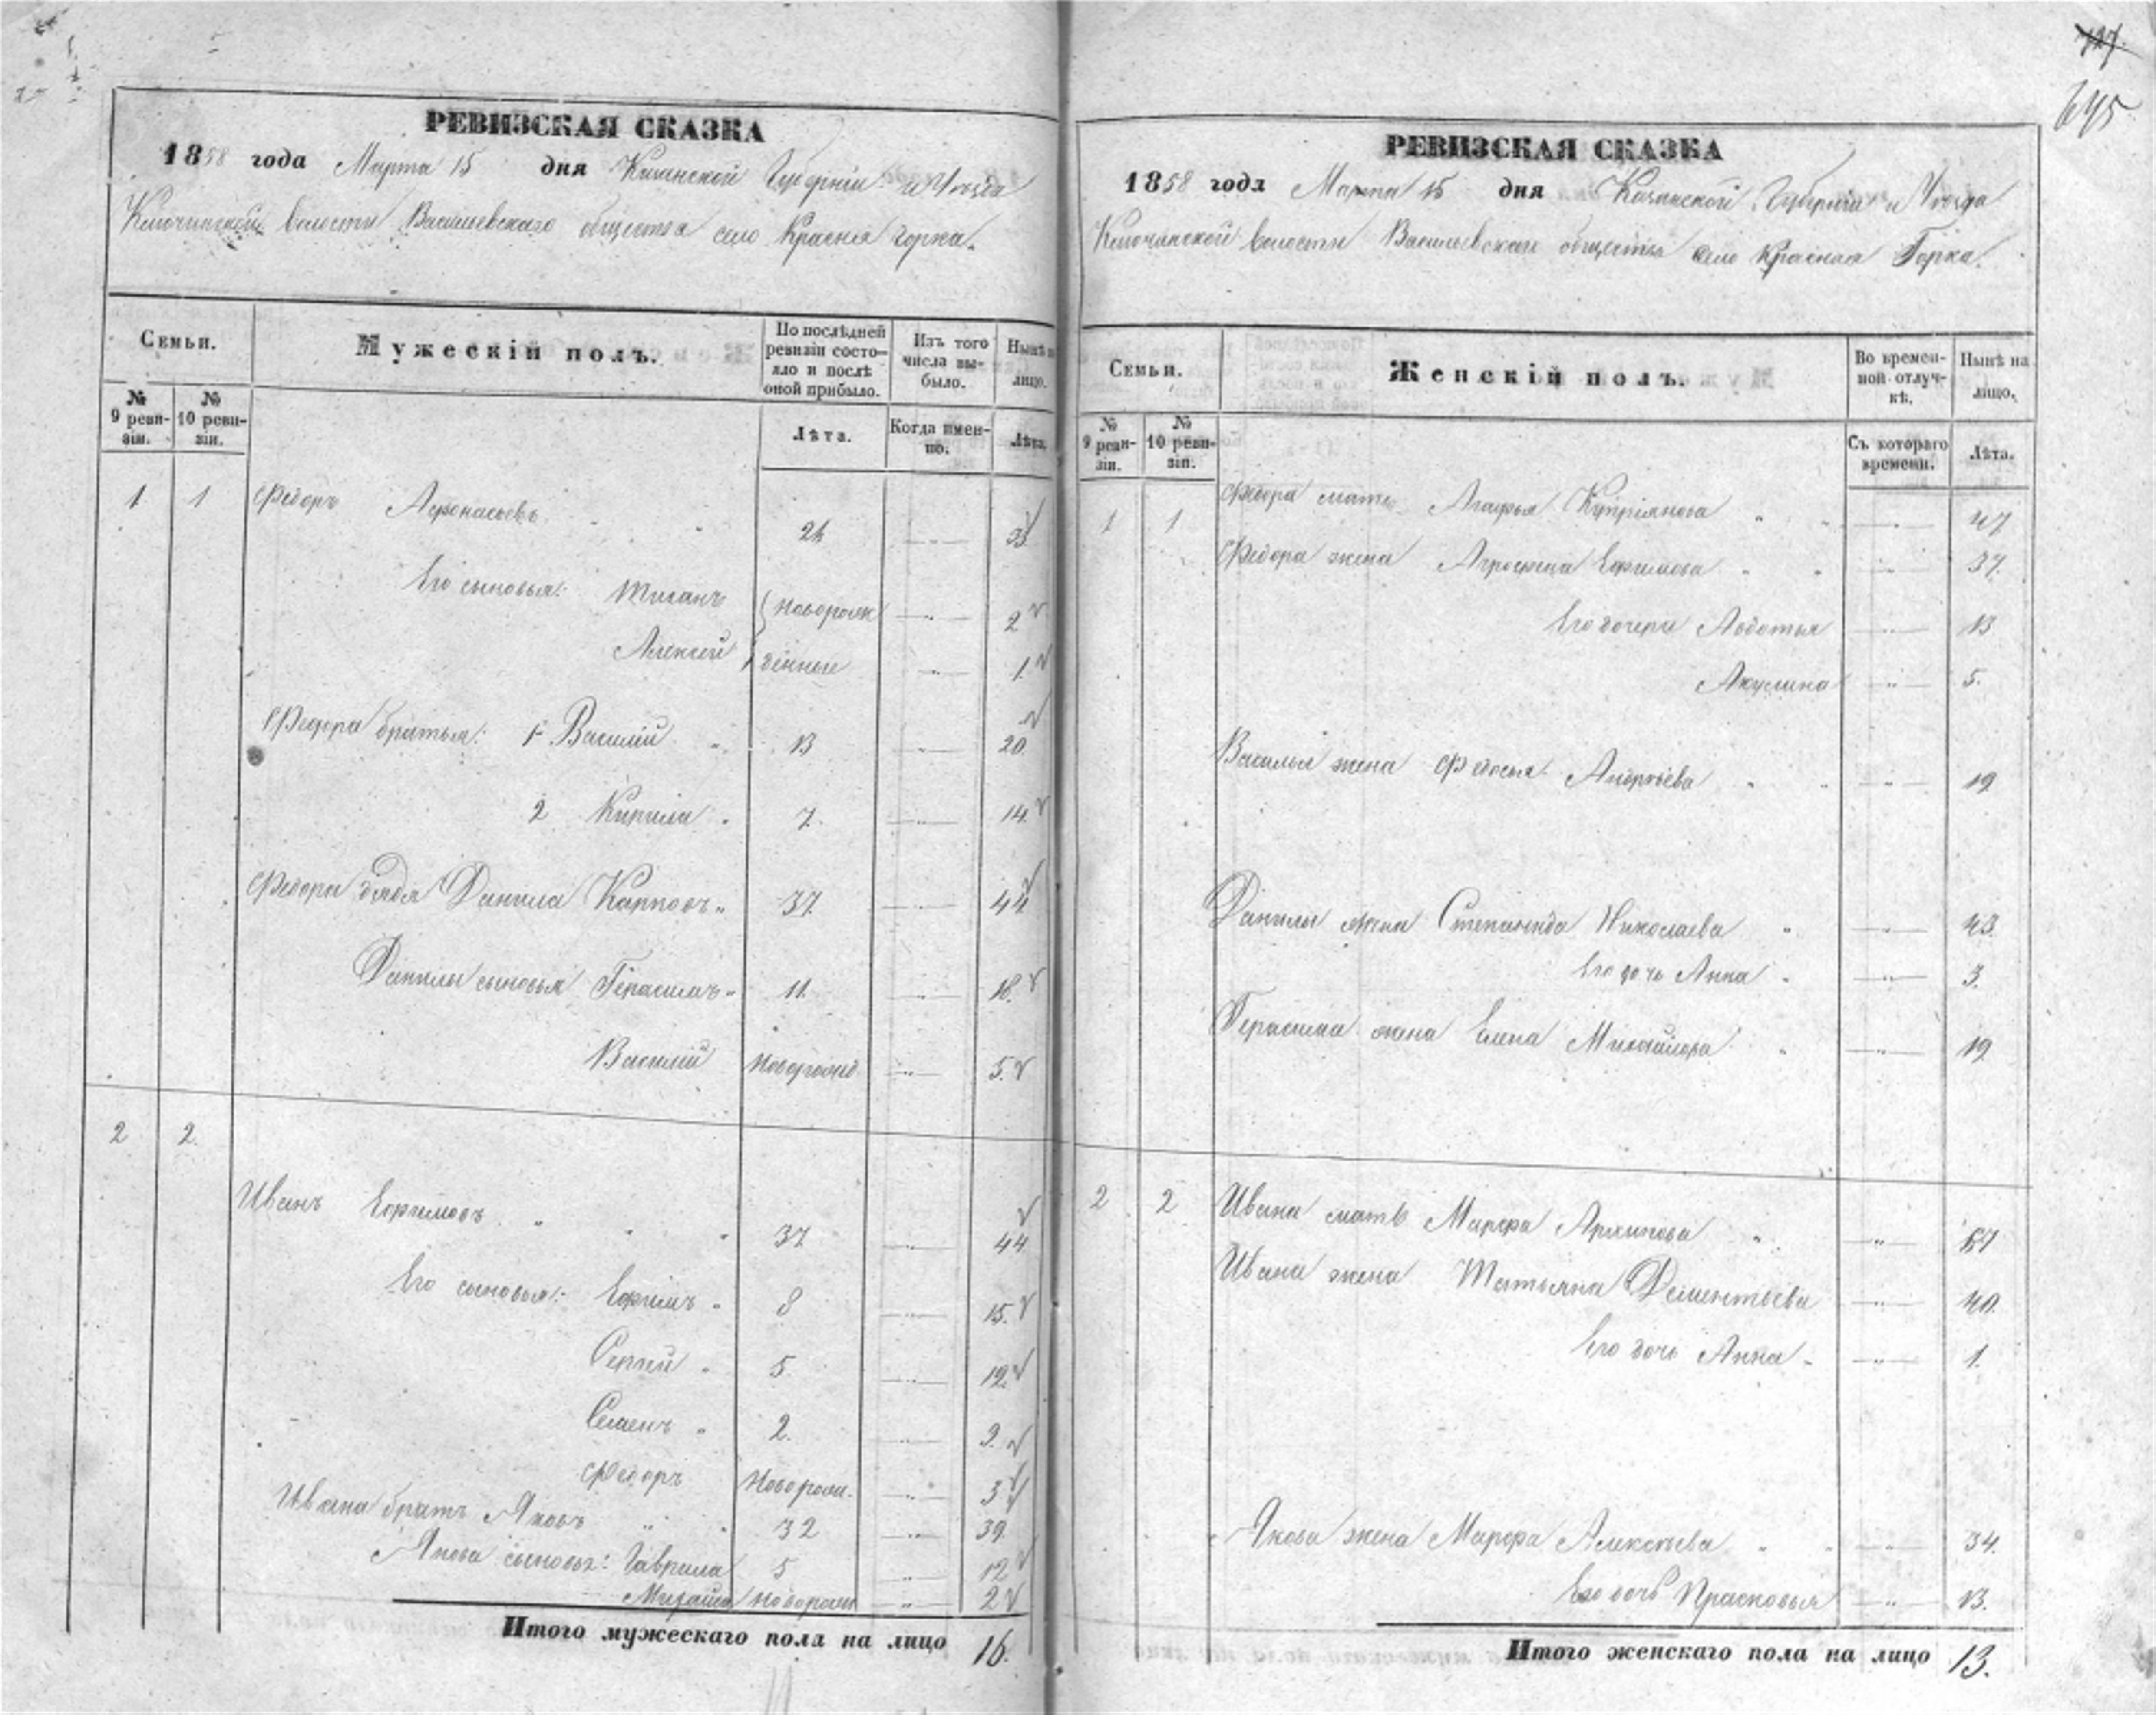 127
645
РЕВИЗСКАЯ СКАЗКА
1858 года Марта 15 дня Казанской Губерніи и Уѣзда
Ключинской волости Васильевскаго общества село Красная горка.
Семьи.
Мужескій полъ.
По послѣдней ревизіи состояло и послѣ оной прибыло.
Изъ того числа выбыло.
Нынѣ на лицо.
№ 9 ревизіи.
№ 10 ревизіи.
Лѣта.
Когда именно.
Лѣта.
1 1 Федоръ Афонасьевъ 24
Его сыновья: Новорож 2
Алексей денные 1
Федора братья: 1 Василій 13 20
2 Кирила 7. 14.
Федора дядя Данила Карповъ 37 44
Данилы сыновья Герасимъ 11. 18.
Василій Новорожд 5.
2 2.
Иванъ Ефимовъ 37 44
Его сыновья: Ефимъ 8 15.
Сергей 5. 12.
Семенъ 2. 9.
Федоръ Новорож. 3
Ивана братъ Яковъ 32 39
Якова сыновья: Гаврила 5 12
Михайла Новорож 2
Итого мужескаго пола на лицо 16.
РЕВИЗСКАЯ СКАЗКА
1858 года Марта 15 дня Казанской Губерніи и Уѣзда
Ключинской волости Васильевскаго общества село Красная Горка.
Семьи.
Женскій полъ.
Во временной отлучкѣ.
Нынѣ на лицо.
№ 9 ревизіи.
№ 10 ревизіи.
Съ котораго времени.
Лѣта.
1 1 Федора мать Агафья Купріянова 47
Федора жена Агрофена Ефимова 37.
Его дочери Авдотья 13
Акулина 5.
Василья жена Федосья Андреева 19
Данилы жена Степанида Николаева 43.
Его дочь Анна 3.
Герасима жена Елена Михайлова 19
2 2 Ивана мать Марфа Архипова 67
Ивана жена Татьяна Дементьева 40.
Его дочь Анна 1.
Якова жена Марфа Алексѣева 34.
Его дочь Прасковья 13.
Итого женскаго пола на лицо 13.